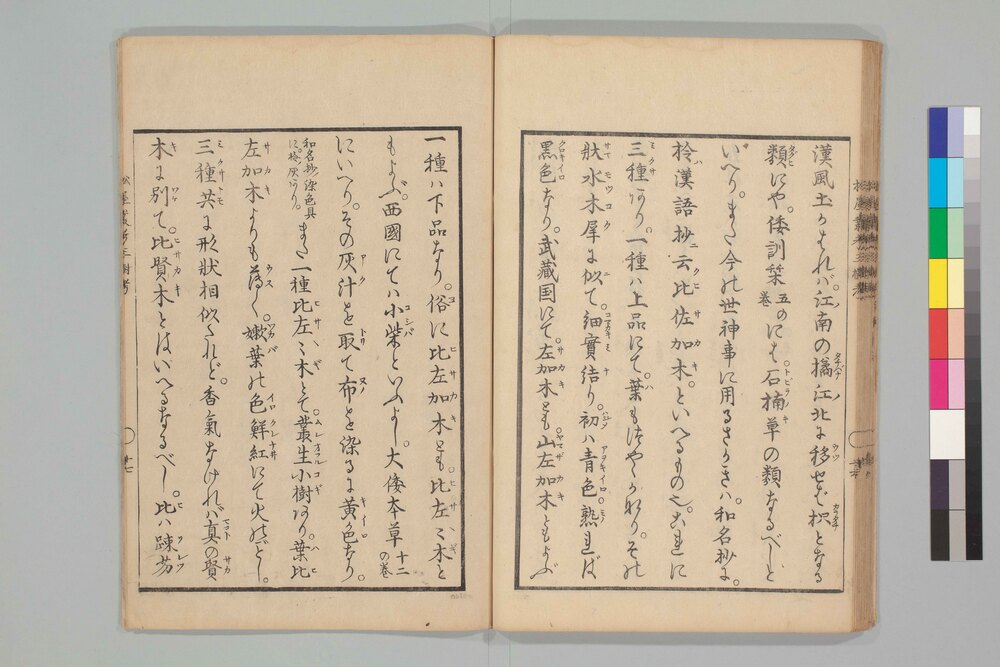 漢風土かはれバ。江南の橘江北に移せば枳となる
類にや。倭訓栞五の巻にも石楠草の類なるべしと
いへり。また今の世神事に用るさかきハ。和名抄に。
柃漢語抄云比佐加木。といへるもの也。これに
三種あり。一種ハ上品にて。葉もつややかなり。その
状水木犀に似て。細實結り。初ハ青色。熟れば
黒色なり。武藏国にて。左加木とも。山左加木ともよぶ
一種ハ下品なり。俗に比左加木とも。比左ミ木と
もよぶ。西國にてハ小柴といふよし。大倭本草十二の巻
にいへり。その灰汁を取て布を染るに黄色なり。
和名抄染色具に。柃灰あり。また一種比左ミ木とて。叢生小樹あり。葉比
左加木よりも薄く。嫩葉の色鮮紅にて火のごとし。
三種共に形状相似たれど。香氣なけれバ。真の賢
木に別て。比賢木とはいへるなるべし。比ハ疎芴